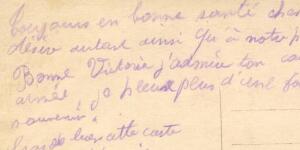 Toujours en bonne santé cher
Désire autant ainsi qu'à notre p
Bonne Victoria j'admire ton ca
aimée, je pleure plus d'une fo
souvenir!
bas de cette carte